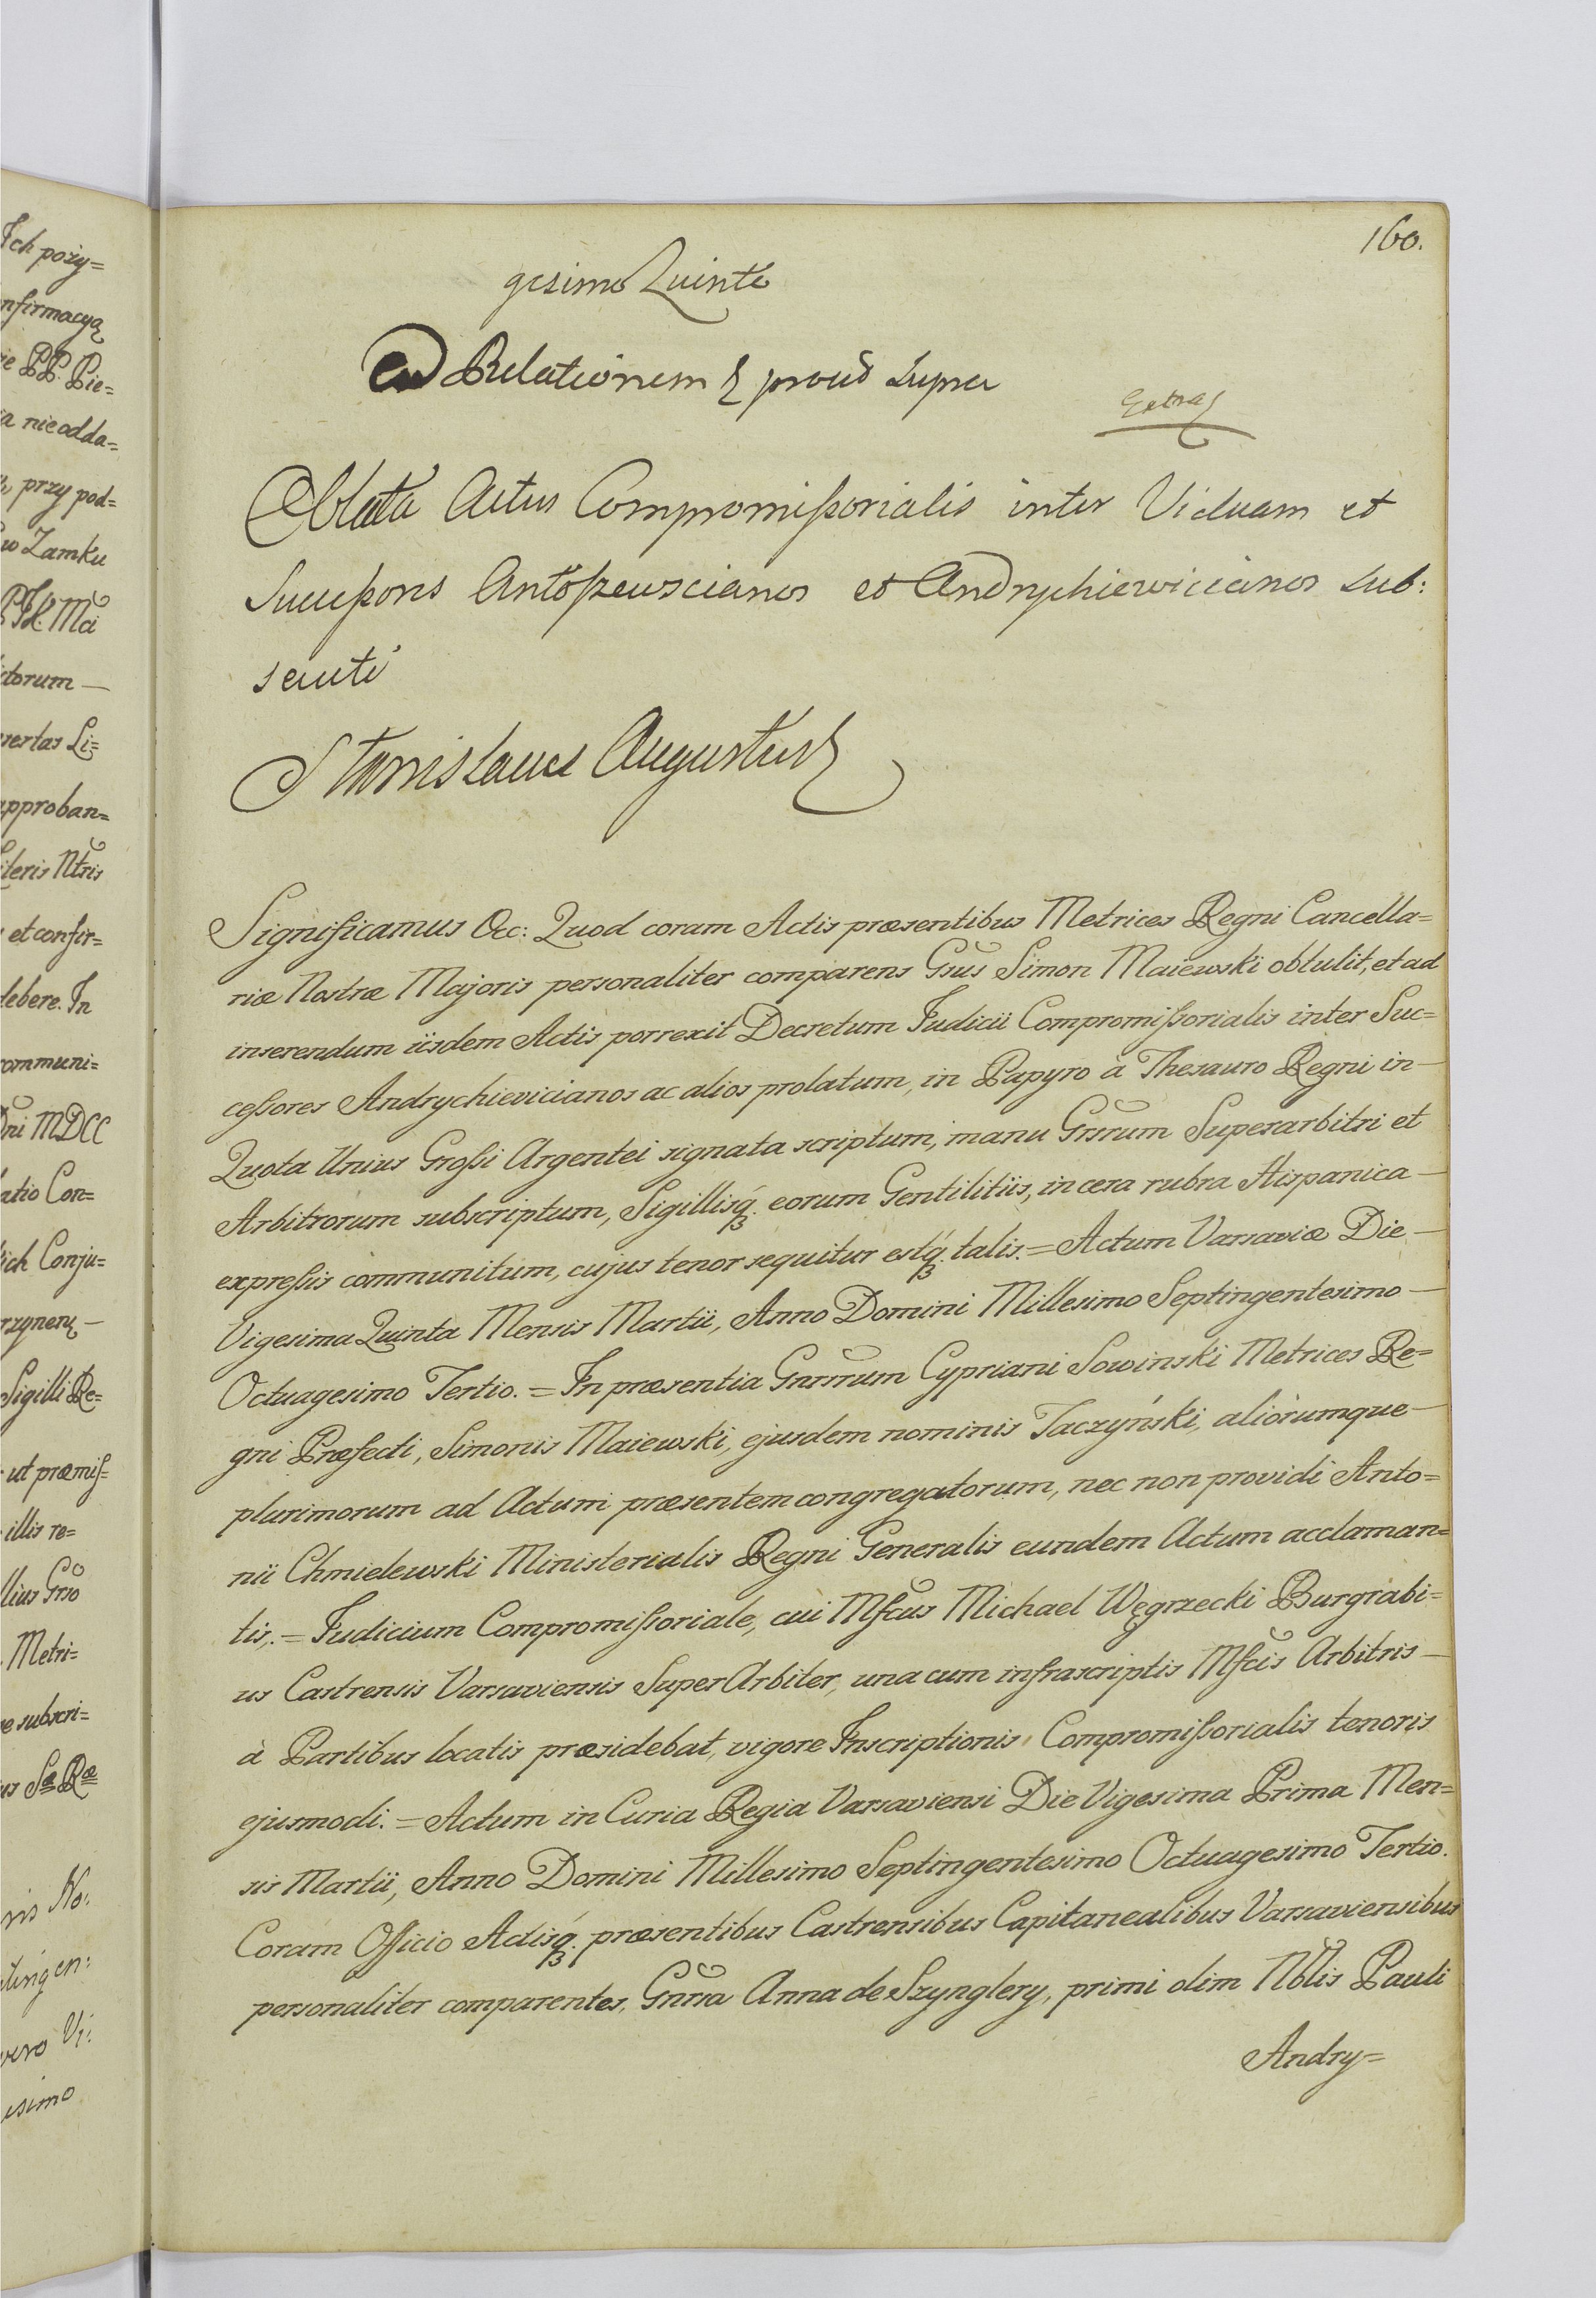 160.
gesimo Quinto
Ad Relationem & prout supra
Extra&
Oblata Actus Compromissorialis inter Viduam et
Successores Antoszewscianos et Andrychiewicianos sub:
secuti
Stanislaus Augustus &
Significamus &cc: Quod coram Actis præsentibus Metrices Regni Cancella=
riæ Nostræ Majoris personaliter comparens Gsus Simon Maiewski obtulit, et ad
inserendum iisdem Actis porrexit Decretum Judicii Compromissorialis inter Suc=
cessores Andrychievicianos ac alios prolatum, in Papyro à Thesauro Regni in—
Quota Unius Grossi Argentei signata scriptum, manu Grsrum Superarbitri et
Arbitrorum subscriptum, Sigillisq́ꝫ. eorum Gentilitiis, in cera rubra Hispanica—
expressis communitum, cujus tenor sequitur estq́ꝫ. talis.=Actum Varsaviæ Die—
Vigesima Quinta Mensis Martii, Anno Domini Millesimo Septingentesimo—
Octuagesimo Tertio.=In præsentia Gnrrrum Cypriani Sowinski Metrices Re=
gni Præfecti, Simonis Maiewski, ejusdem nominis Taczyński, aliorumque—
plurimorum ad Actum præsentem congregatorum, nec non providi Anto=
nii Chmielewski Ministerialis Regni Generalis eundem Actum acclaman=
tis,.=Judicium Compromissoriale, cui Mfcus Michael Węgrzecki Burgrabi=
us Castrensis Varsaviensis SuperArbiter, una cum infrascriptis Mfcis Arbitris—
à Partibus locatis præsidebat, vigore Inscriptionis Compromissorialis tenoris
ejusmodi.=Actum in Curia Regia Varsaviensi Die Vigesima Prima Men=
sis Martii, Anno Domini Millesimo Septingentesimo Octuagesimo Tertio.
Coram Officio Actisq́ꝫ. præsentibus Castrensibus Capitanealibus Varsaviensibus
personaliter comparentes, Gnrsa Anna de Szynglery, primi olim Nblis Pauli
Andry=